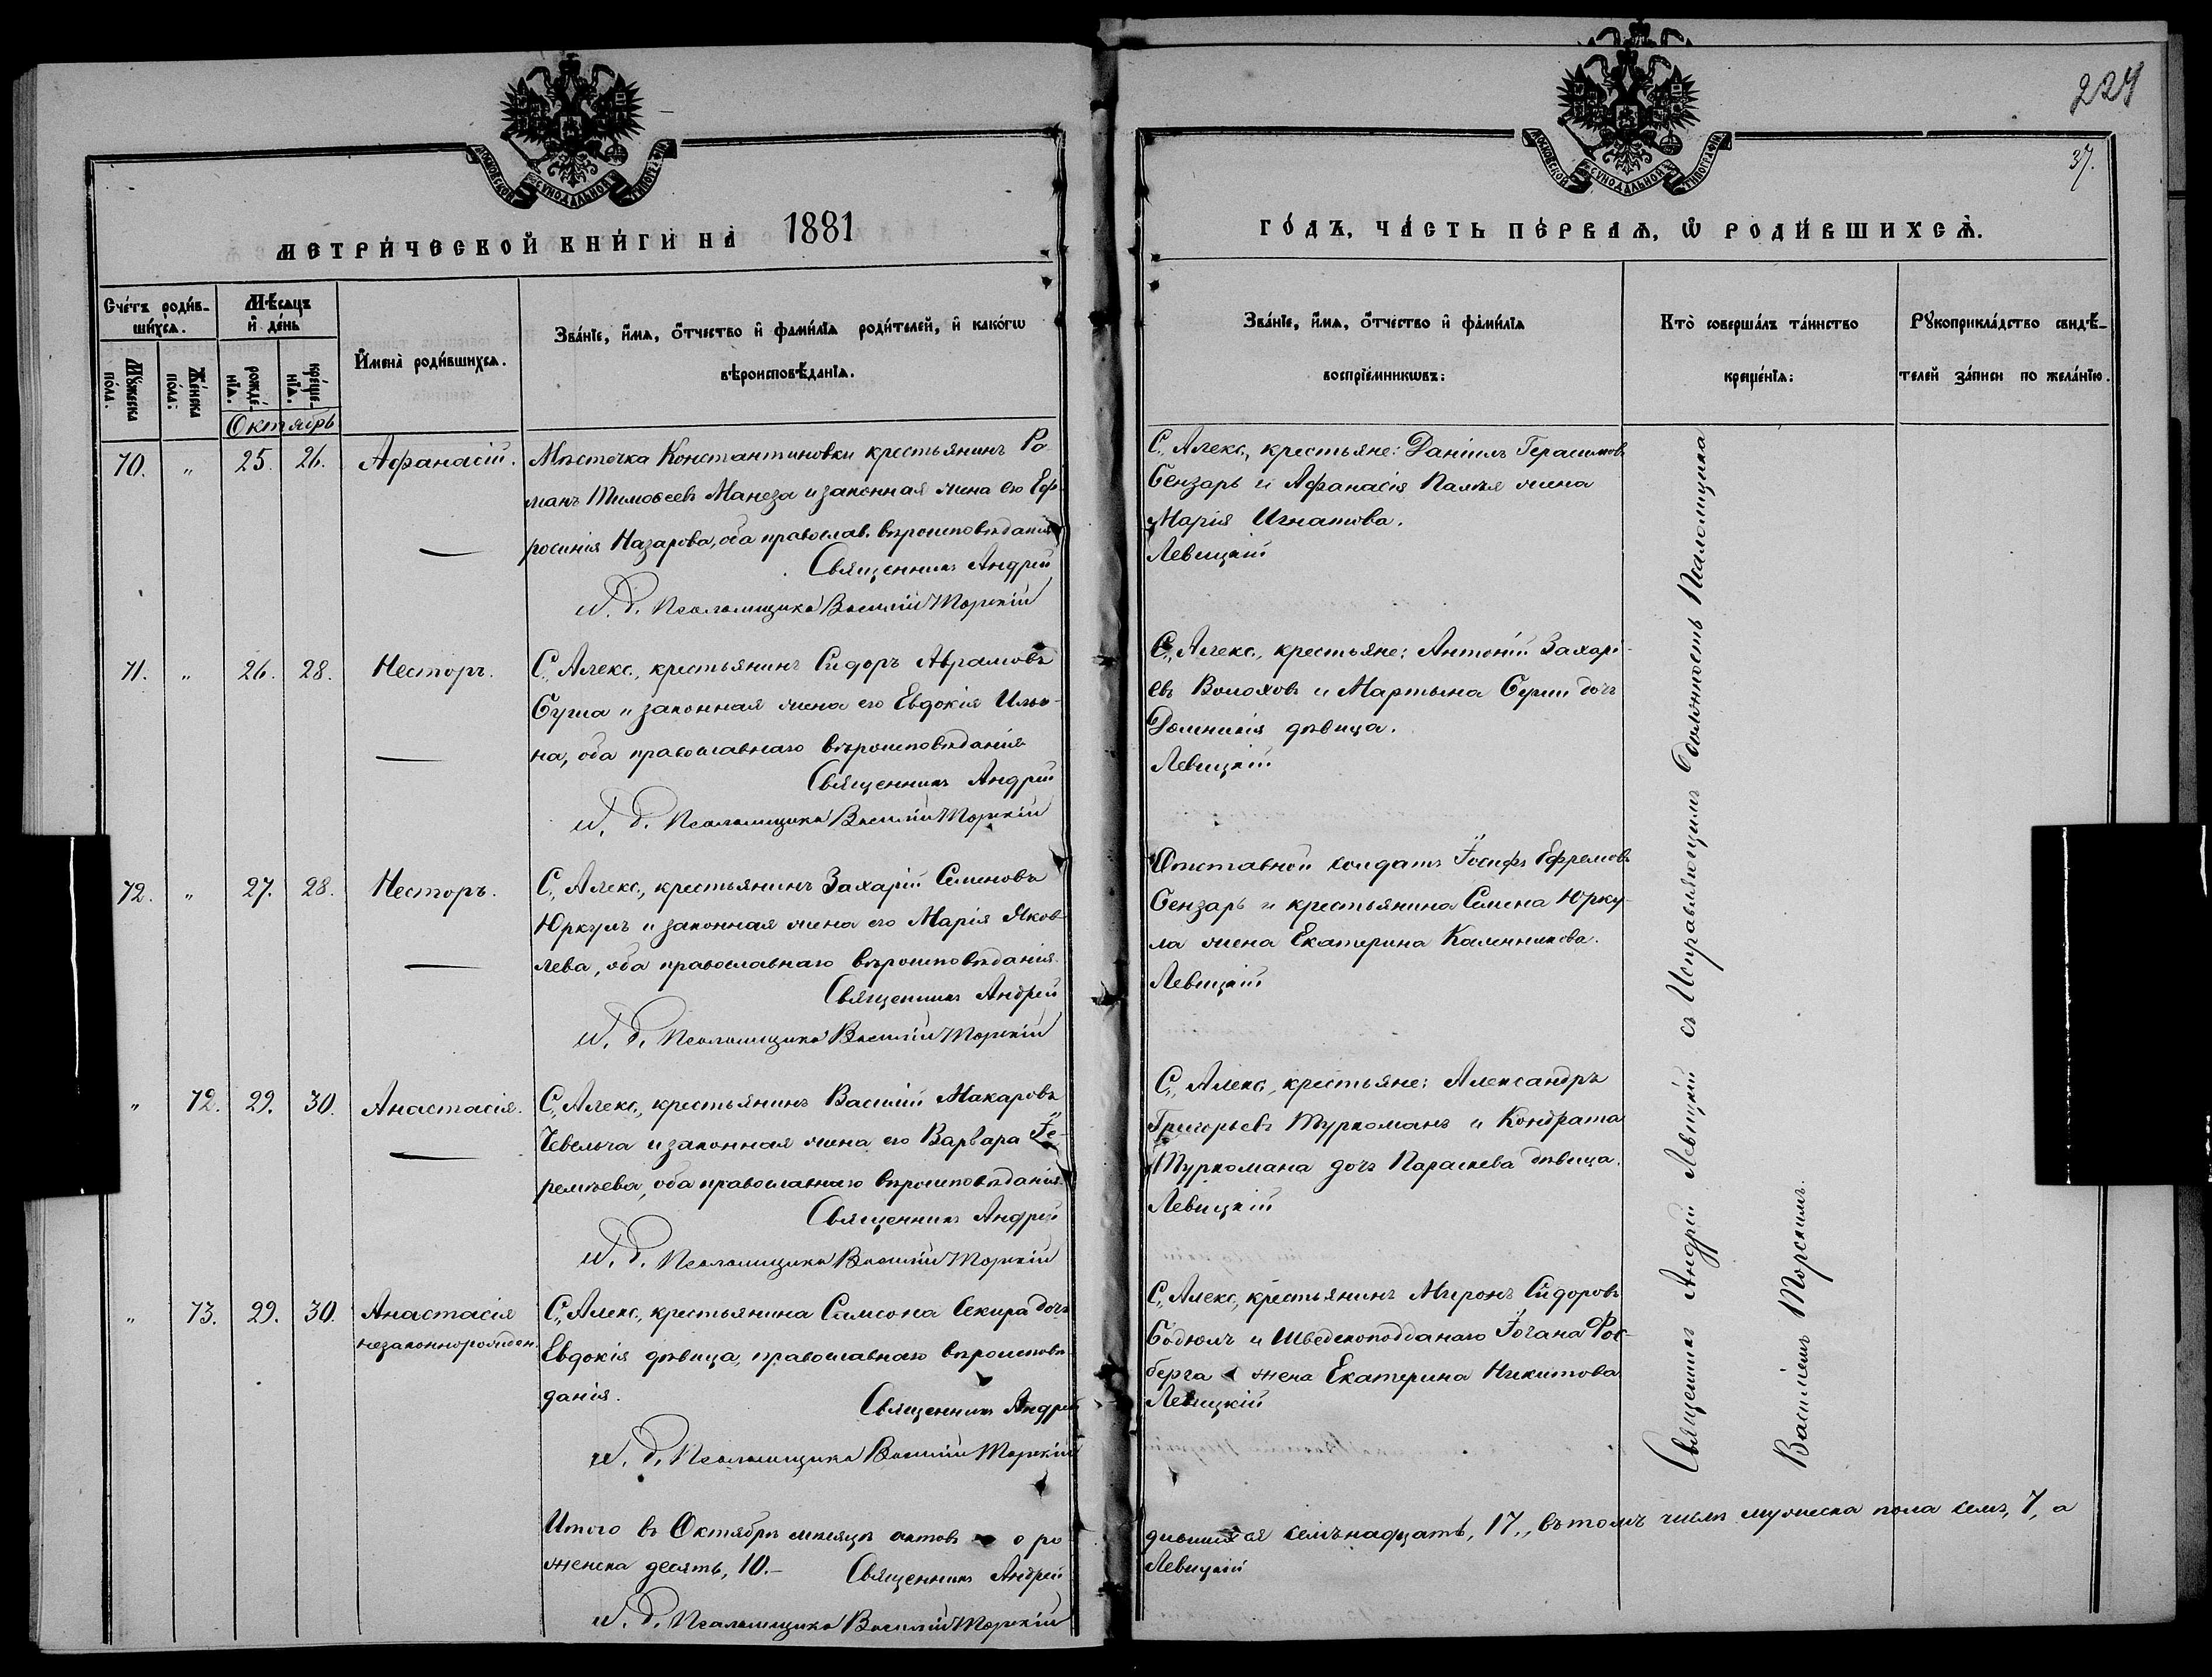 224
37.
МОСКОВСКОЙ СУНОДАЛЬНОЙ ТИПОГРАФІИ
МОСКОВСКОЙ СУНОДАЛЬНОЙ ТИПОГРАФІИ
МЕТРИ́ЧЕСКОЙ КНИ́ГИ НА̀ 1881
ГО́ДЪ, ЧА́СТЬ ПЕ́РВАѦ, Ѡ҆ РОДИ́ВШИХСѦ.
Сче́тъ роди́вшихсѧ.
Мꙋ́жеска по́ла.
Же́нска по́ла.
Мѣ́сѧцъ и҆ де́нь
рожде́нїѧ.
креще́нїѧ.
И҆мена̀ роди́вшихсѧ.
Зва́нїе, и҆́мѧ, ѻ҆́тчество и҆ фами́лїѧ роди́телей, и҆ како́гѡ
вѣроисповѣ́данїѧ.
Зва́нїе, и҆́мѧ, ѻ҆́тчество и҆ фами́лїѧ
воспрїе́мникѡвъ:
Кто̀ соверша́лъ та́инство
креще́нїѧ:
Рꙋкоприкла́дство свидѣ́-
телей за́писи по жела́нїю.
Октябрь
70. " 25. 26. Афанасій.
Мѣстечка Константиновки крестьянинъ Ро
манъ Тимоѳеевъ Манеза и законная жена его Еф
росинія Назарова, оба православ. вѣроисповѣданія
Священникъ Андрей
И. д. Псаломщика Василій Торскій
С., Алекс., крестьяне: Даніилъ Герасимовъ
Бензарь и Афанасія Памъя жена
Марія Игнатова.
Левицкій
71. " 26. 28. Несторъ.
С., Алекс., крестьянинъ Сидоръ Аврамовъ
Буга и законная жена его Евдокія Ильи-
на, оба православнаго вѣроисповѣданія
Священникъ Андрей
И. д. Псаломщика Василій Торскій
С., Алекс., крестьяне: Антоній Захарі-
евъ Волоховъ и Мартына дочь
Домникія дѣвица.
Левицкій
72. " 27. 28. Несторъ.
С., Алекс., крестьянинъ Захарій Семеновъ
Юркулъ и законная жена его Марія Яков-
лева, оба православнаго вѣроисповѣданія.
Священникъ Андрей
И. д. Псаломщика Василій Торскій
Отставной солдатъ Іосифъ Ефремовъ
Бензарь и крестьянина Семена Юрку-
ла жена Екатерина Калинникова.
Левицкій
" 72. 29. 30. Анастасія.
С., Алекс., крестьянинъ Василій Макаровъ
Чебельча и законная жена его Варвара Іе-
реміева, оба православнаго вѣроисповѣданія.
Священникъ Андрей
И. д. Псаломщика Василій Торскій
С., Алекс., крестьяне: Александръ
Григорьевъ Туркоманъ и Кондрата
Туркомана дочь Параскева дѣвица.
Левицкій
" 73. 29. 30. Анастасія
незаконнорожден.
С., Алекс., крестьянина Самсона Секира дочь
Евдокія дѣвица, православнаго вѣроисповѣ
данія.
Священникъ Андрей
И. д. Псаломщика Василій Торскій
С., Алекс., крестьянинъ Миронъ Сидоровъ
Бодюлъ и Шведскоподданаго Іогана Фос-
берга жена Екатерина Никитова
Левицкій
Итого въ Октябрѣ мѣсяцѣ актовъ о ро
дившихся семьнадцать, 17., въ томъ числѣ мужеска пола семь, 7, а
женска десять, 10.– Священникъ Андрей
Левицкій
И. д. Псаломщика Василій Торскій
Священникъ Андрей Левицкій съ Исправляющимъ должность Псаломщика
Василіемъ Торскимъ.